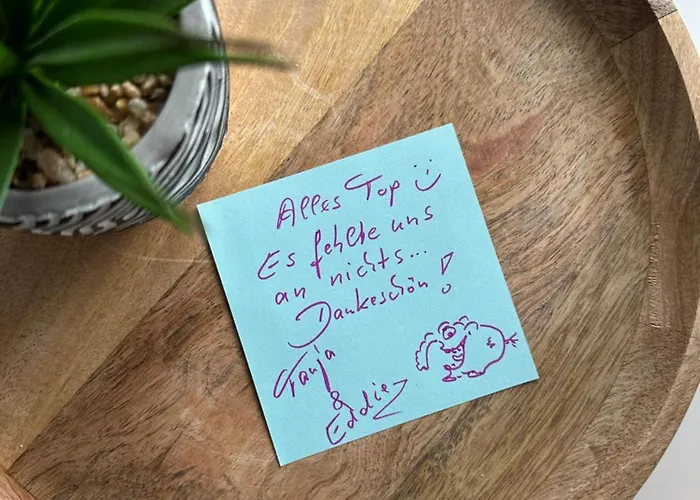 Alles Top
Es fehlte uns
an nichts...
Dankeschön!
Tanja
&
Eddie